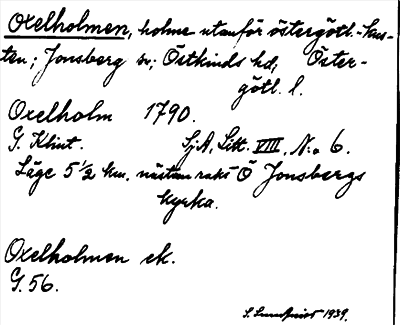 Oxelholmen, holme utanför östergötl.-kus-
ten; Jonsberg sn; Östkinds hd, Öster-
götl. l.
Oxelholm 1790.
G. Klint. Sj.A, Litt. VIII, N:o 6.
Läge 5 1/2 km. nästan rakt Ö Jonsbergs
kyrka.
Oxelholmen ek.
G. 56.
S. Lundqvist 1939.